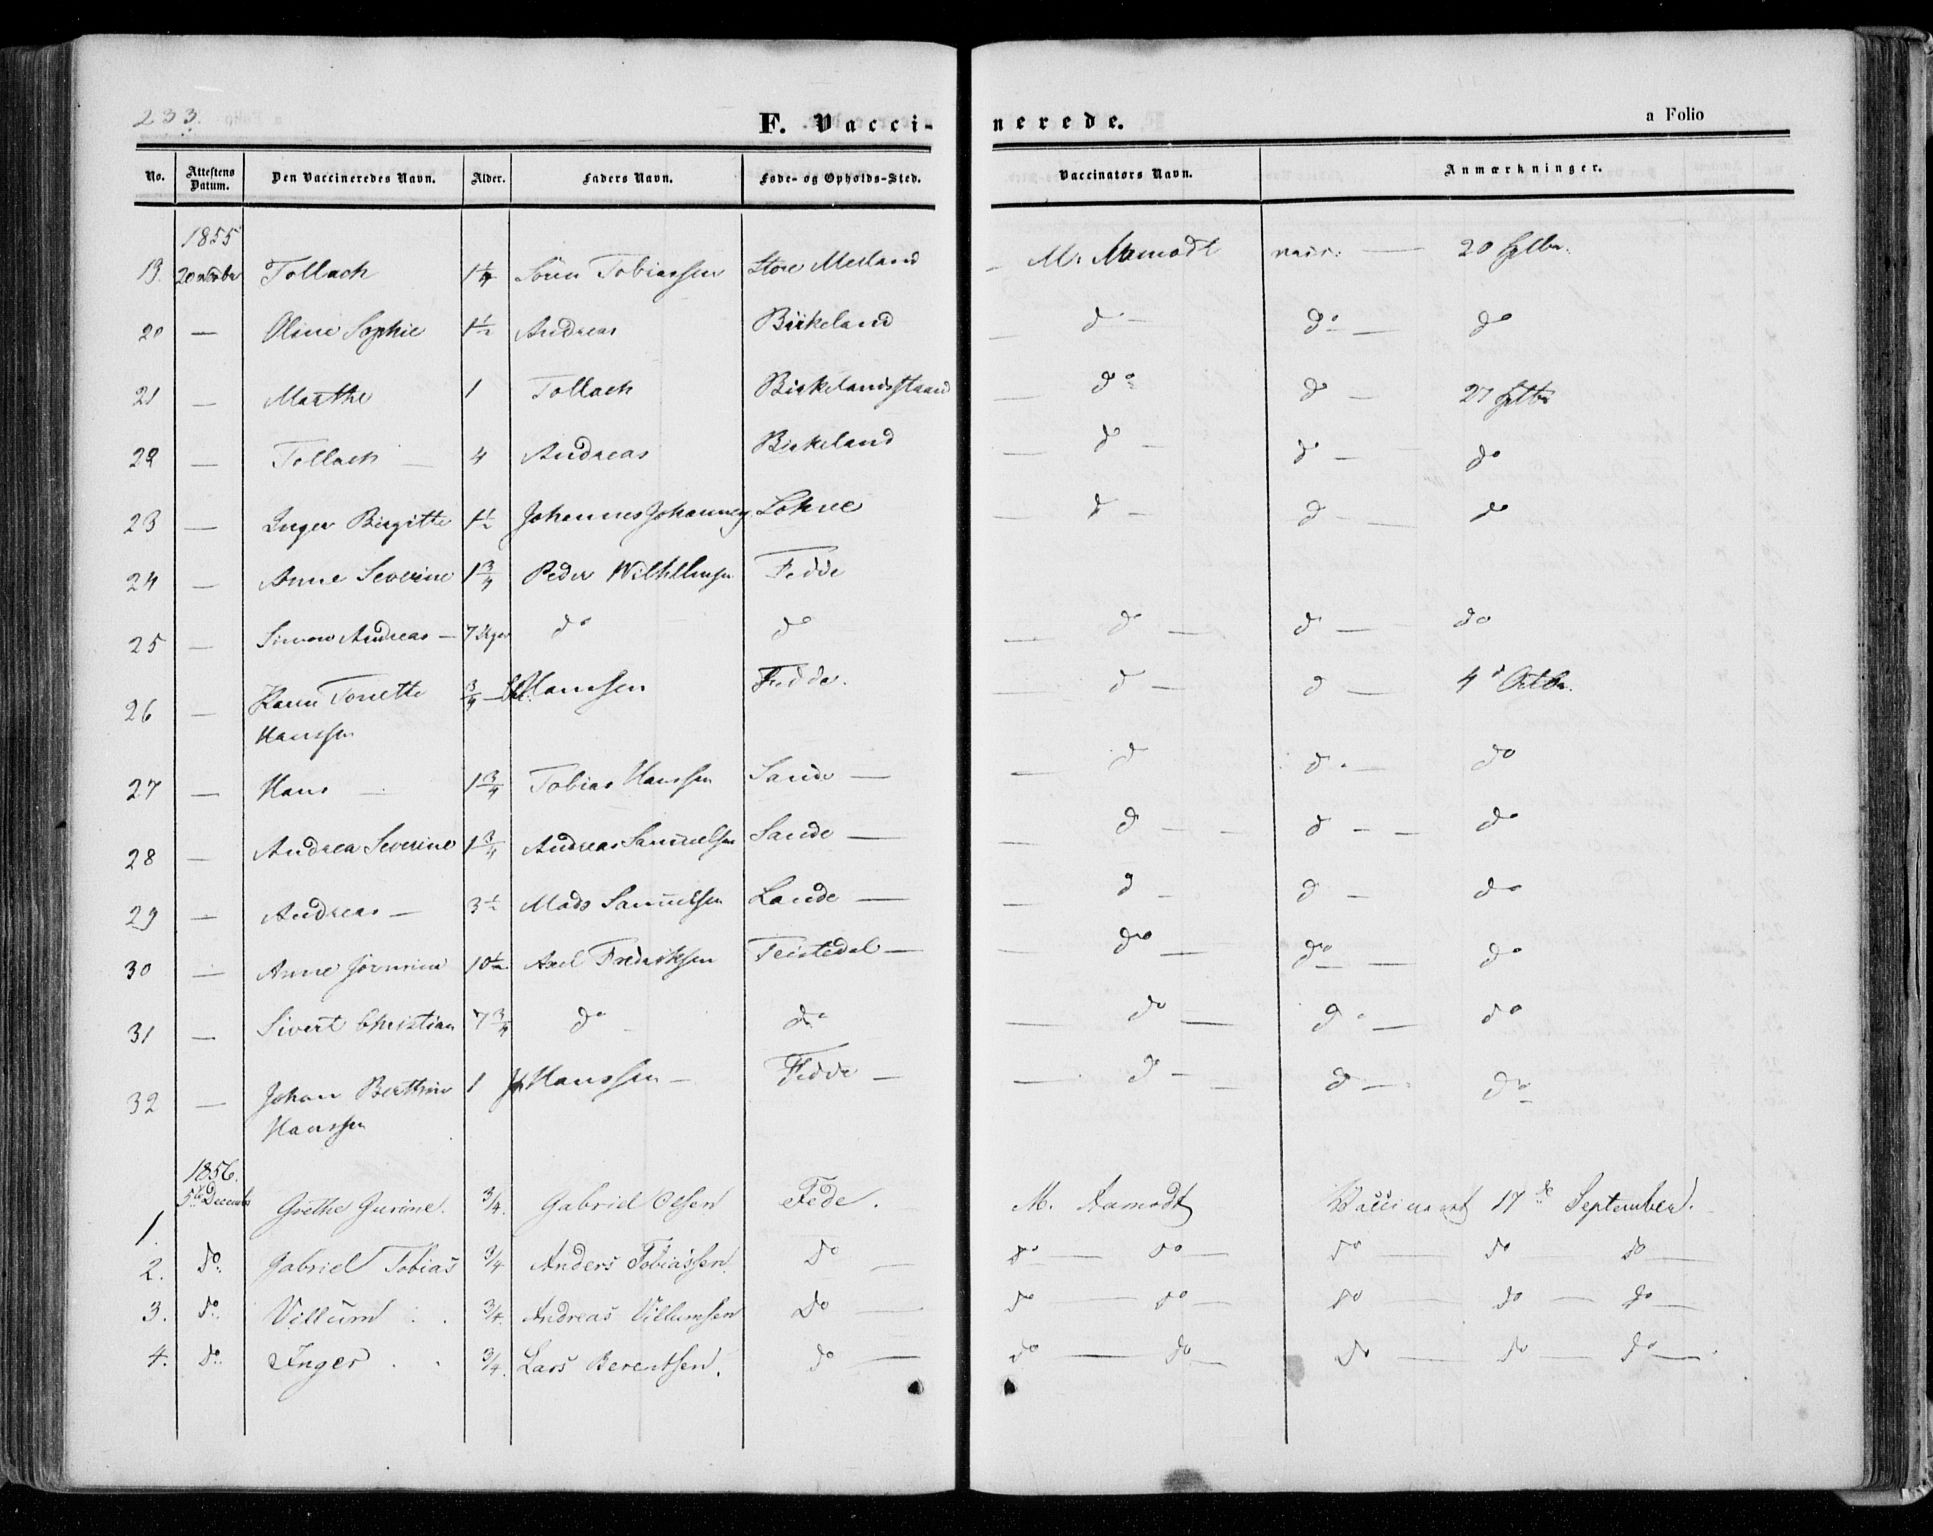 233.
F. Vacci-
nerede.
a Folio
No. Attestens Datum. Den Vaccineredes Navn. Alder. Faders Navn. Føde- og Opholds-Sted. Vaccinators Navn. Anmærkninger.
1855
19. 20 Tollach 1 1/4 Sören Tobiassen Store Mesland M. Aamodt vacc. — 20 Sptbr.
20 — Oline Sophie 1 1/2 Andreas Birkeland — do — do — do
21 — Marthe 1 Tollach Birkelandsstrand — do do — 27 Sptbr
22 — Tollach — 4 Andreas Birkeland — do — do — do
23 — Inger Birgitte 1 1/2 Johannes Lohne — do — do — do
24 — Anne Severine 1 3/4 Peder Fedde
25 — Simon Andreas — 7 do do — do — do — do
26 — Tonette 3/4 — Hanssen Fedde. — do — do — 4 Octbr.
Hanssen
27 — Hans — 1 3/4 Tobias Hanssen Sande — — do do — do
28 — Andrea Severine 1 3/4 Andreas Samuelsen Sande — — do — — do — — do
29 — Andreas — 3 1/2 Mads Samuelsen Lande — — do — do — do
30 — Anne 10 1/2 Axel Fredriksen Feistedal — — do — do — do
31 — Sivert Christian 7 3/4 do do — do — do — do
32 — Johan 1 Hanssen — Fedde — — do — do — do
Hanssen
1856.
5te Decemb
1. Grethe Gurine. 3/4. Gabriel Olsen Fede. M. Aamodt Vaccineret 17de September.
2. do Gabriel Tobias 3/4 Anders Tobiassen do — do — do — do — do — do —
3. do Villum . . 3/4. Andreas Villumsen do — do — do — do — do — do —
4. do Inger . . 3/4. Lars Berentsen. do — do — do — do — do — do —